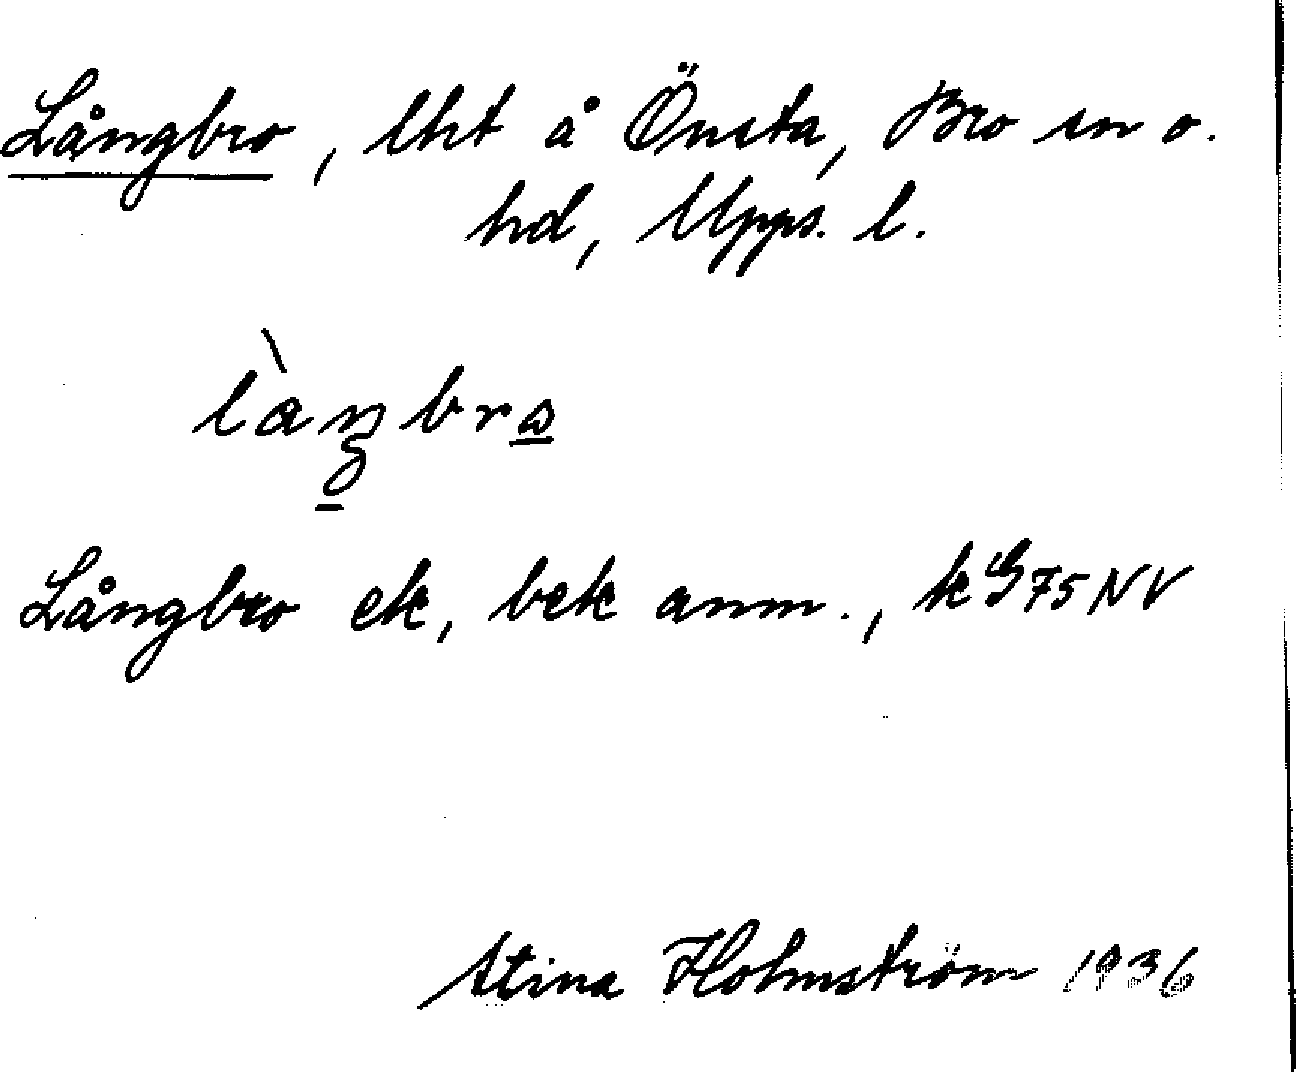 Långbro, lht å Önsta, Bro sn o.
hd, Upps. l.
Långbro ek, bek anm., k G 75 NV
Stina Holmström 1936